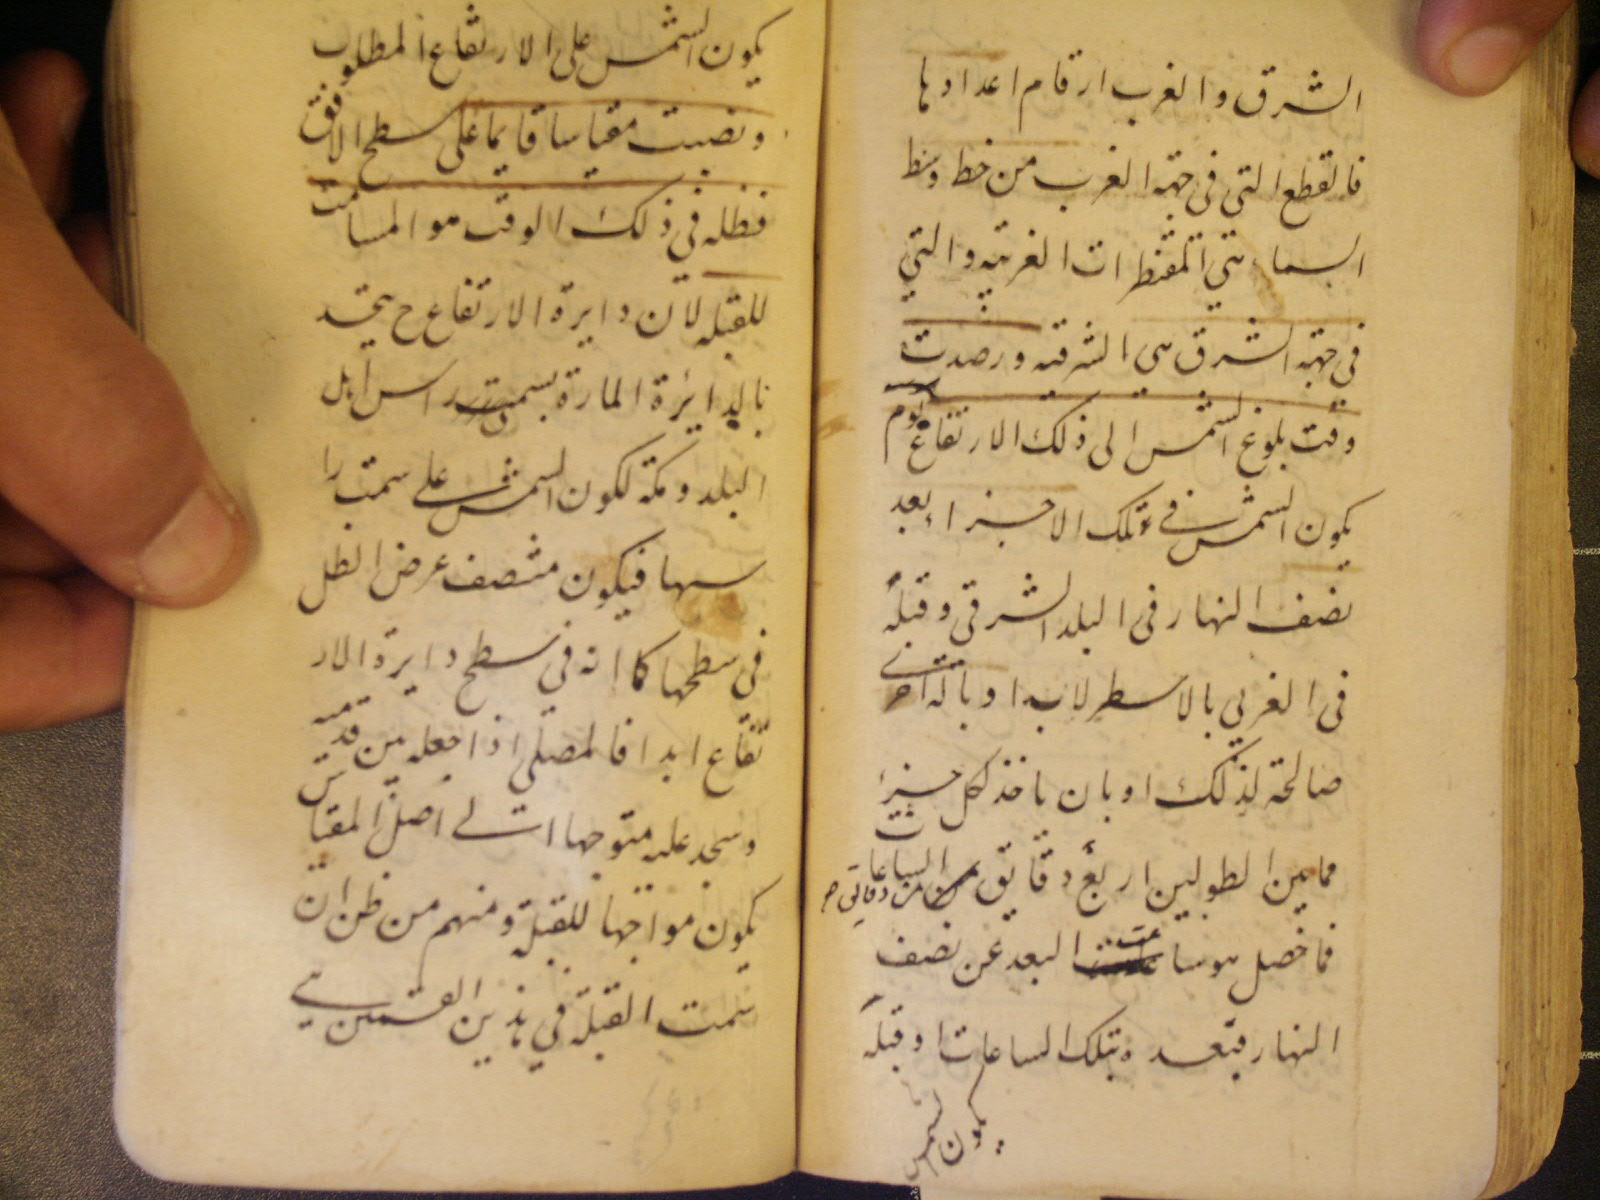 الشرق والغرب ارقام اعدادها
فالقطع التي في جهة الغرب من خط وسط
السماء هي المقنطرات الغربية والتي
في جهة الشرق هي الشرقية ورصدت
وقت بلوغ الشمس الى ذلك الارتفاع يوم
يكون الشمس في تلك الاجزاء بعد
نصف النهار في البلد الشرقي وقبله
في الغربي بالاسطرلاب او بآلة اخرى
صالحة لذلك او بان ياخذ لكل جزء
مما بين الطولين اربع دقايق من دقايق الساعات
فما حصل هو ساعات البعد عن نصف
النهار فبعده بتلك الساعات او قبله
يكون الشمس
يكون الشمس على الارتفاع المطلوب
ونصبت مقياسا قايما على سطح الافق
فظله في ذلك الوقت هو المسامت
للقبلة لان دايرة الارتفاع ح يتحد
بالدائرة المارة بسمت راس اهل
البلد ومكة لكون الشمس على سمت را
سها فيكون منتصف عرض الظل
في سطحها كما انه في سطح دايرة الار
تفاع ابدا فالمصلي اذا جعله بين قدميه
وسجد عليه متوجها الى اصل المقياس
يكون مواجها للقبلة ومنهم من ظن ان
سمت القبلة في هذين القسمين هي